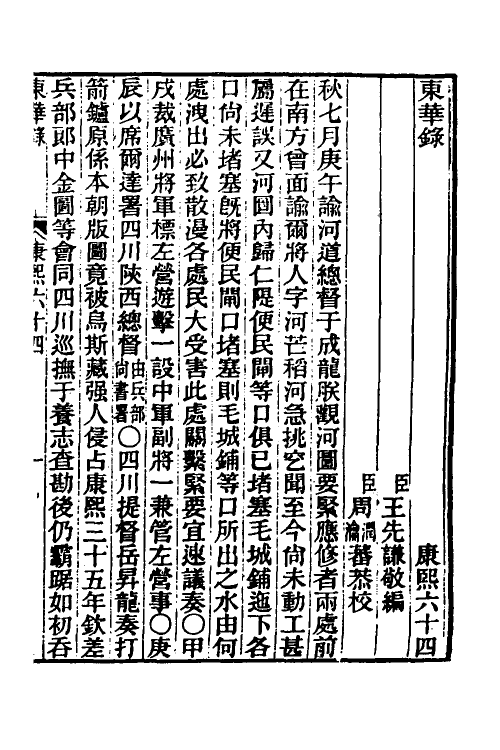 東華錄 康熙六十四
臣王先謙敬編
臣周潤蕃瀹蕃恭校
秋七月庚午諭河道總督于成龍朕觀河圖要緊應修者兩處前
在南方曾面諭爾將人字河芒稻河急挑空聞至今尚未動工甚
屬遲誤又河圖內歸仁隄便民閘等口俱已堵塞毛城鋪迤下各
口尚未堵塞旣將便民閘口堵塞則毛城鋪等口所出之水由何
處洩出必致散漫各處民大受害此處關繫緊要宜速議奏○甲
戌裁廣州將軍標左營遊擊一設中軍副將一兼管左營事○庚
辰以席爾達署四川陝西總督由兵部尚書署○四川提督岳昇龍奏打
箭鑪原係本朝版圖竟被烏斯藏强人侵占康熙三十五年欽差
兵部郎中金圖等會同四川巡撫于養志查勘後仍霸踞如初吞
東華錄 康熙六十四 一